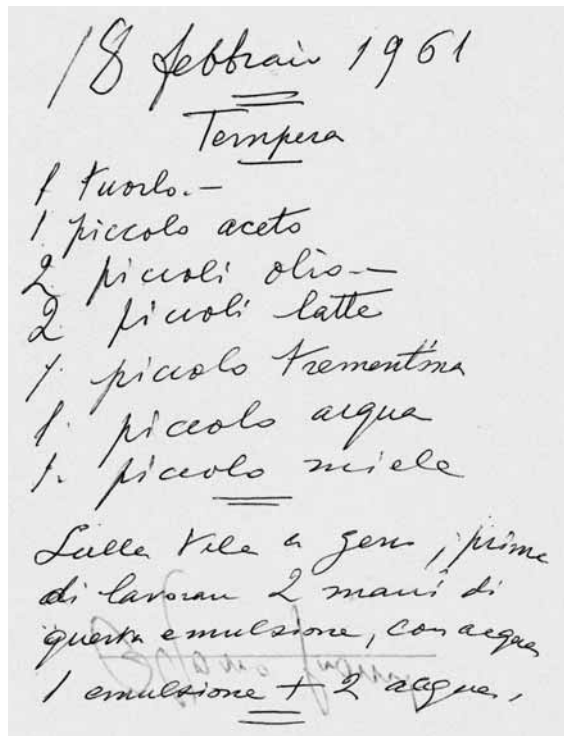 18 febbraio 1961
Tempera
1 tuorlo.—
1 piccolo aceto
2 piccoli olio—
2. piccoli latte
1. piccolo trementina
1. piccolo acqua
1. piccolo miele
Sulla tela a gesso, prima
di lavorare 2 mani di
questa emulsione, con acqua
1 emulsione + 2 acqua,